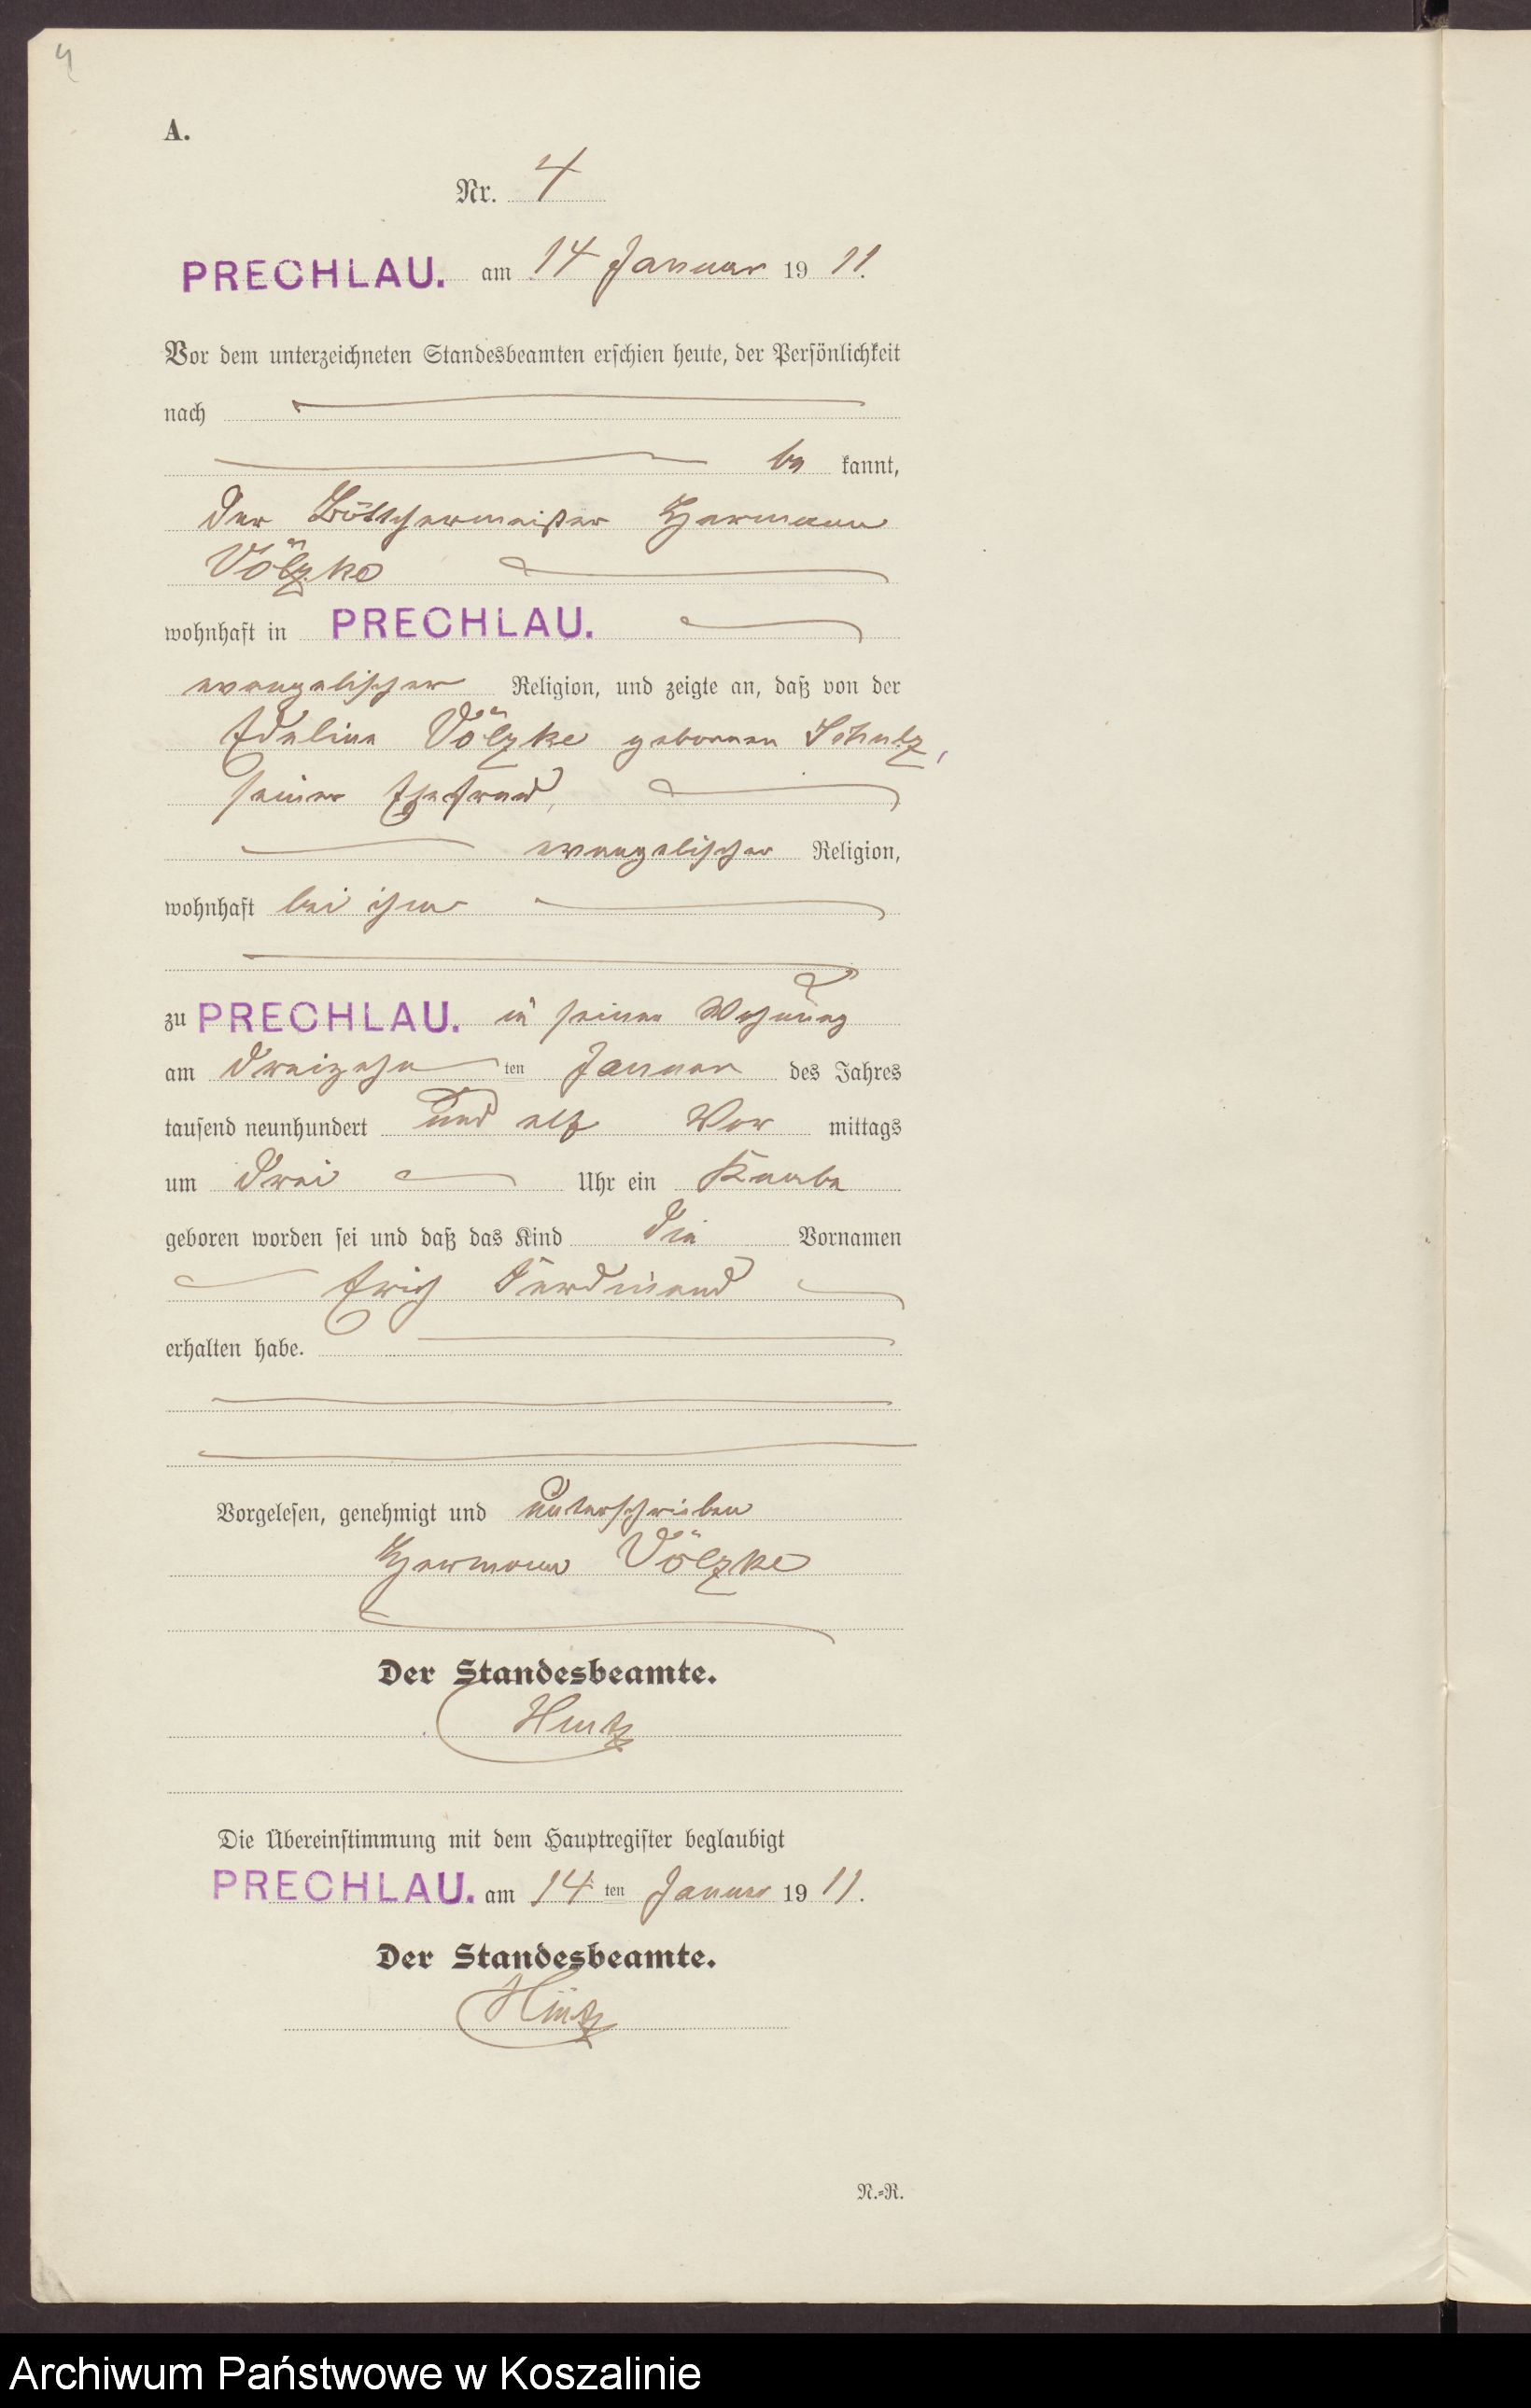 4
A.
Nr. 4
PRECHLAU. am 14 Januar 19 11.
Vor dem unterzeichneten Standesbeamten erschien heute, der Persönlichkeit
nach
be kannt,
der Böttchermeister Hermann
Völzke
wohnhaft in PRECHLAU.
evangelischer Religion, und zeigte an, daß von der
Völzke geborenen Schulz,
seiner Ehefrau,
evangelischer Religion,
wohnhaft bei ihm
zu PRECHLAU. in seiner Wohnung
am dreizehn ten Januar des Jahres
tausend neunhundert und elf Vor mittags
um drei Uhr ein Knabe
geboren worden sei und daß das Kind die Vornamen
Erich Ferdinand
erhalten habe.
Vorgelesen, genehmigt und unterschrieben
Hermann Völzke
Der Standesbeamte.
Hintz
Die Übereinstimmung mit dem Hauptregister beglaubigt
PRECHLAU. am 14 ten Januar 19 11.
Der Standesbeamte.
Hintz
N.-R.
Archiwum Państwowe w Koszalinie